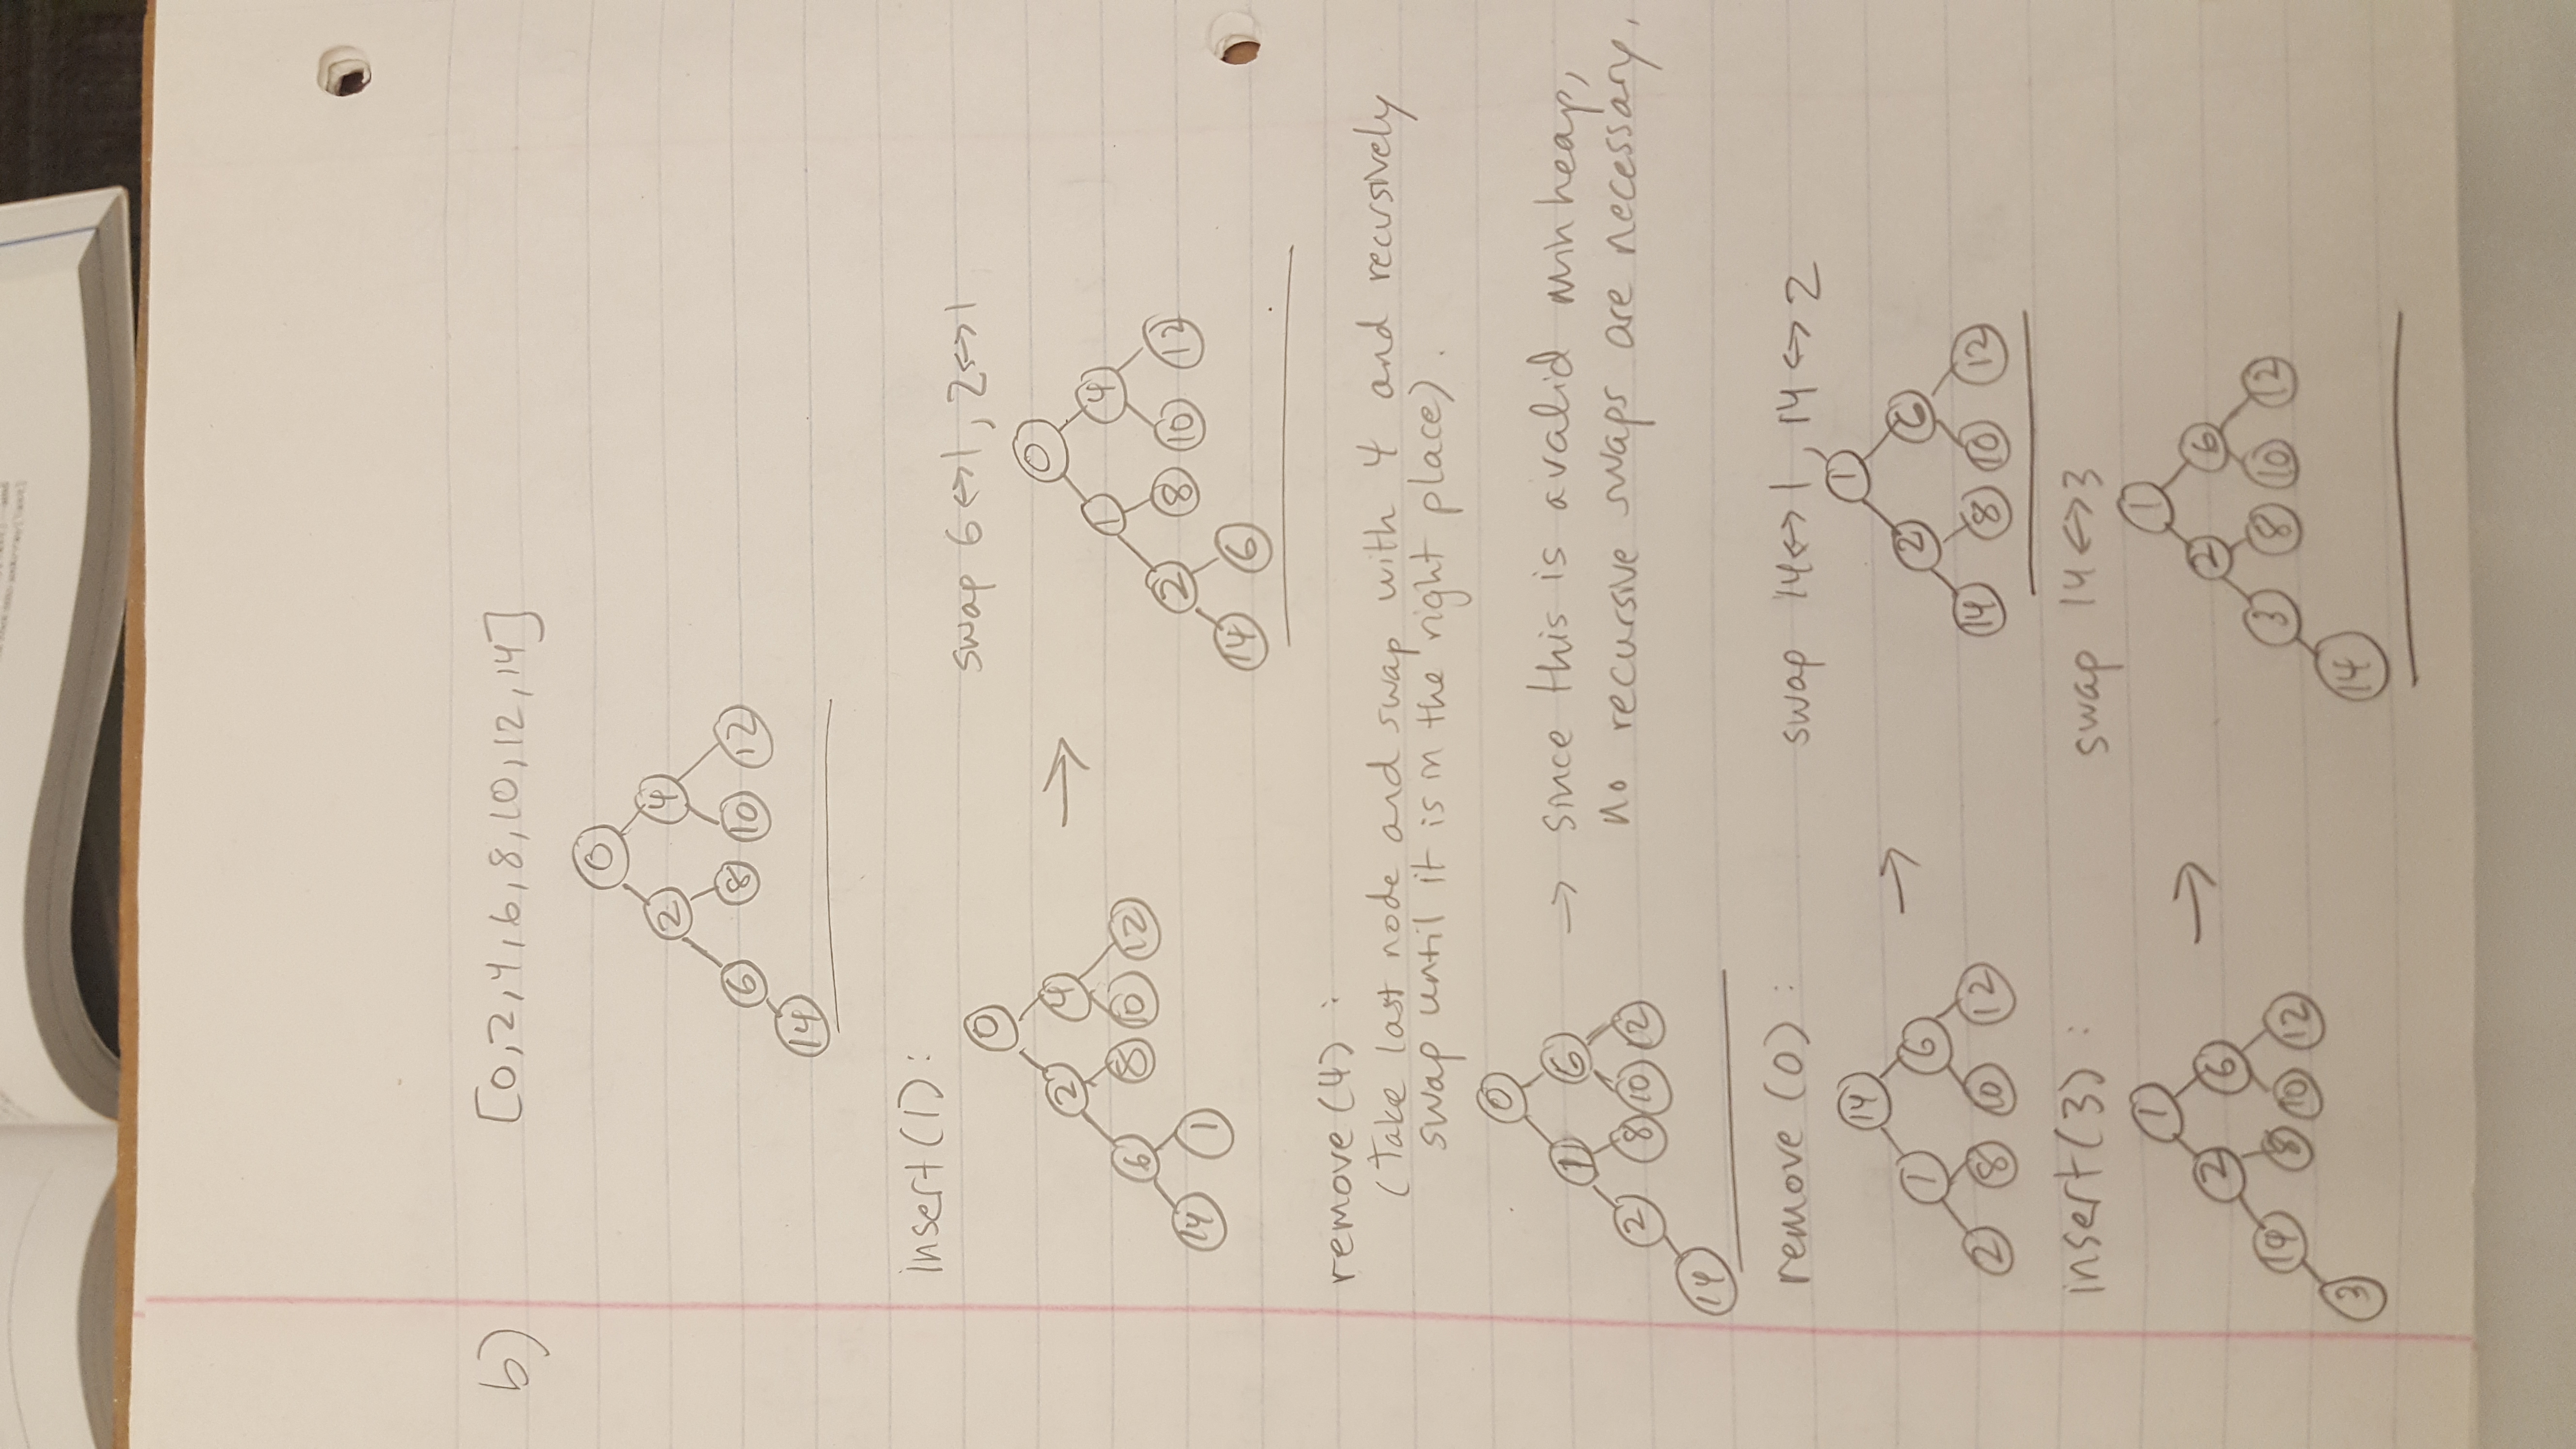 b) [0,2,4,6,8,10,12,14]
0
2 4
6 8 10 12
14
insert(1):
swap 6<->1, 2<->1
0
2 4
6 8 10 12
14 1
→
0
1 4
2 8 10 12
14 6
remove(4):
(Take last node and swap with 4 and recursively
swap until it is in the right place).
0
1 6
2 8 10 12
14
→ since this is a valid min heap,
no recursive swaps are necessary.
remove (0):
swap 14<->1, 14<->2
14
1 6
2 8 10 12
→
1
2 6
14 8 10 12
insert(3):
swap 14<->3
1
2 6
14 8 10 12
3
→
1
2 6
3 8 10 12
14